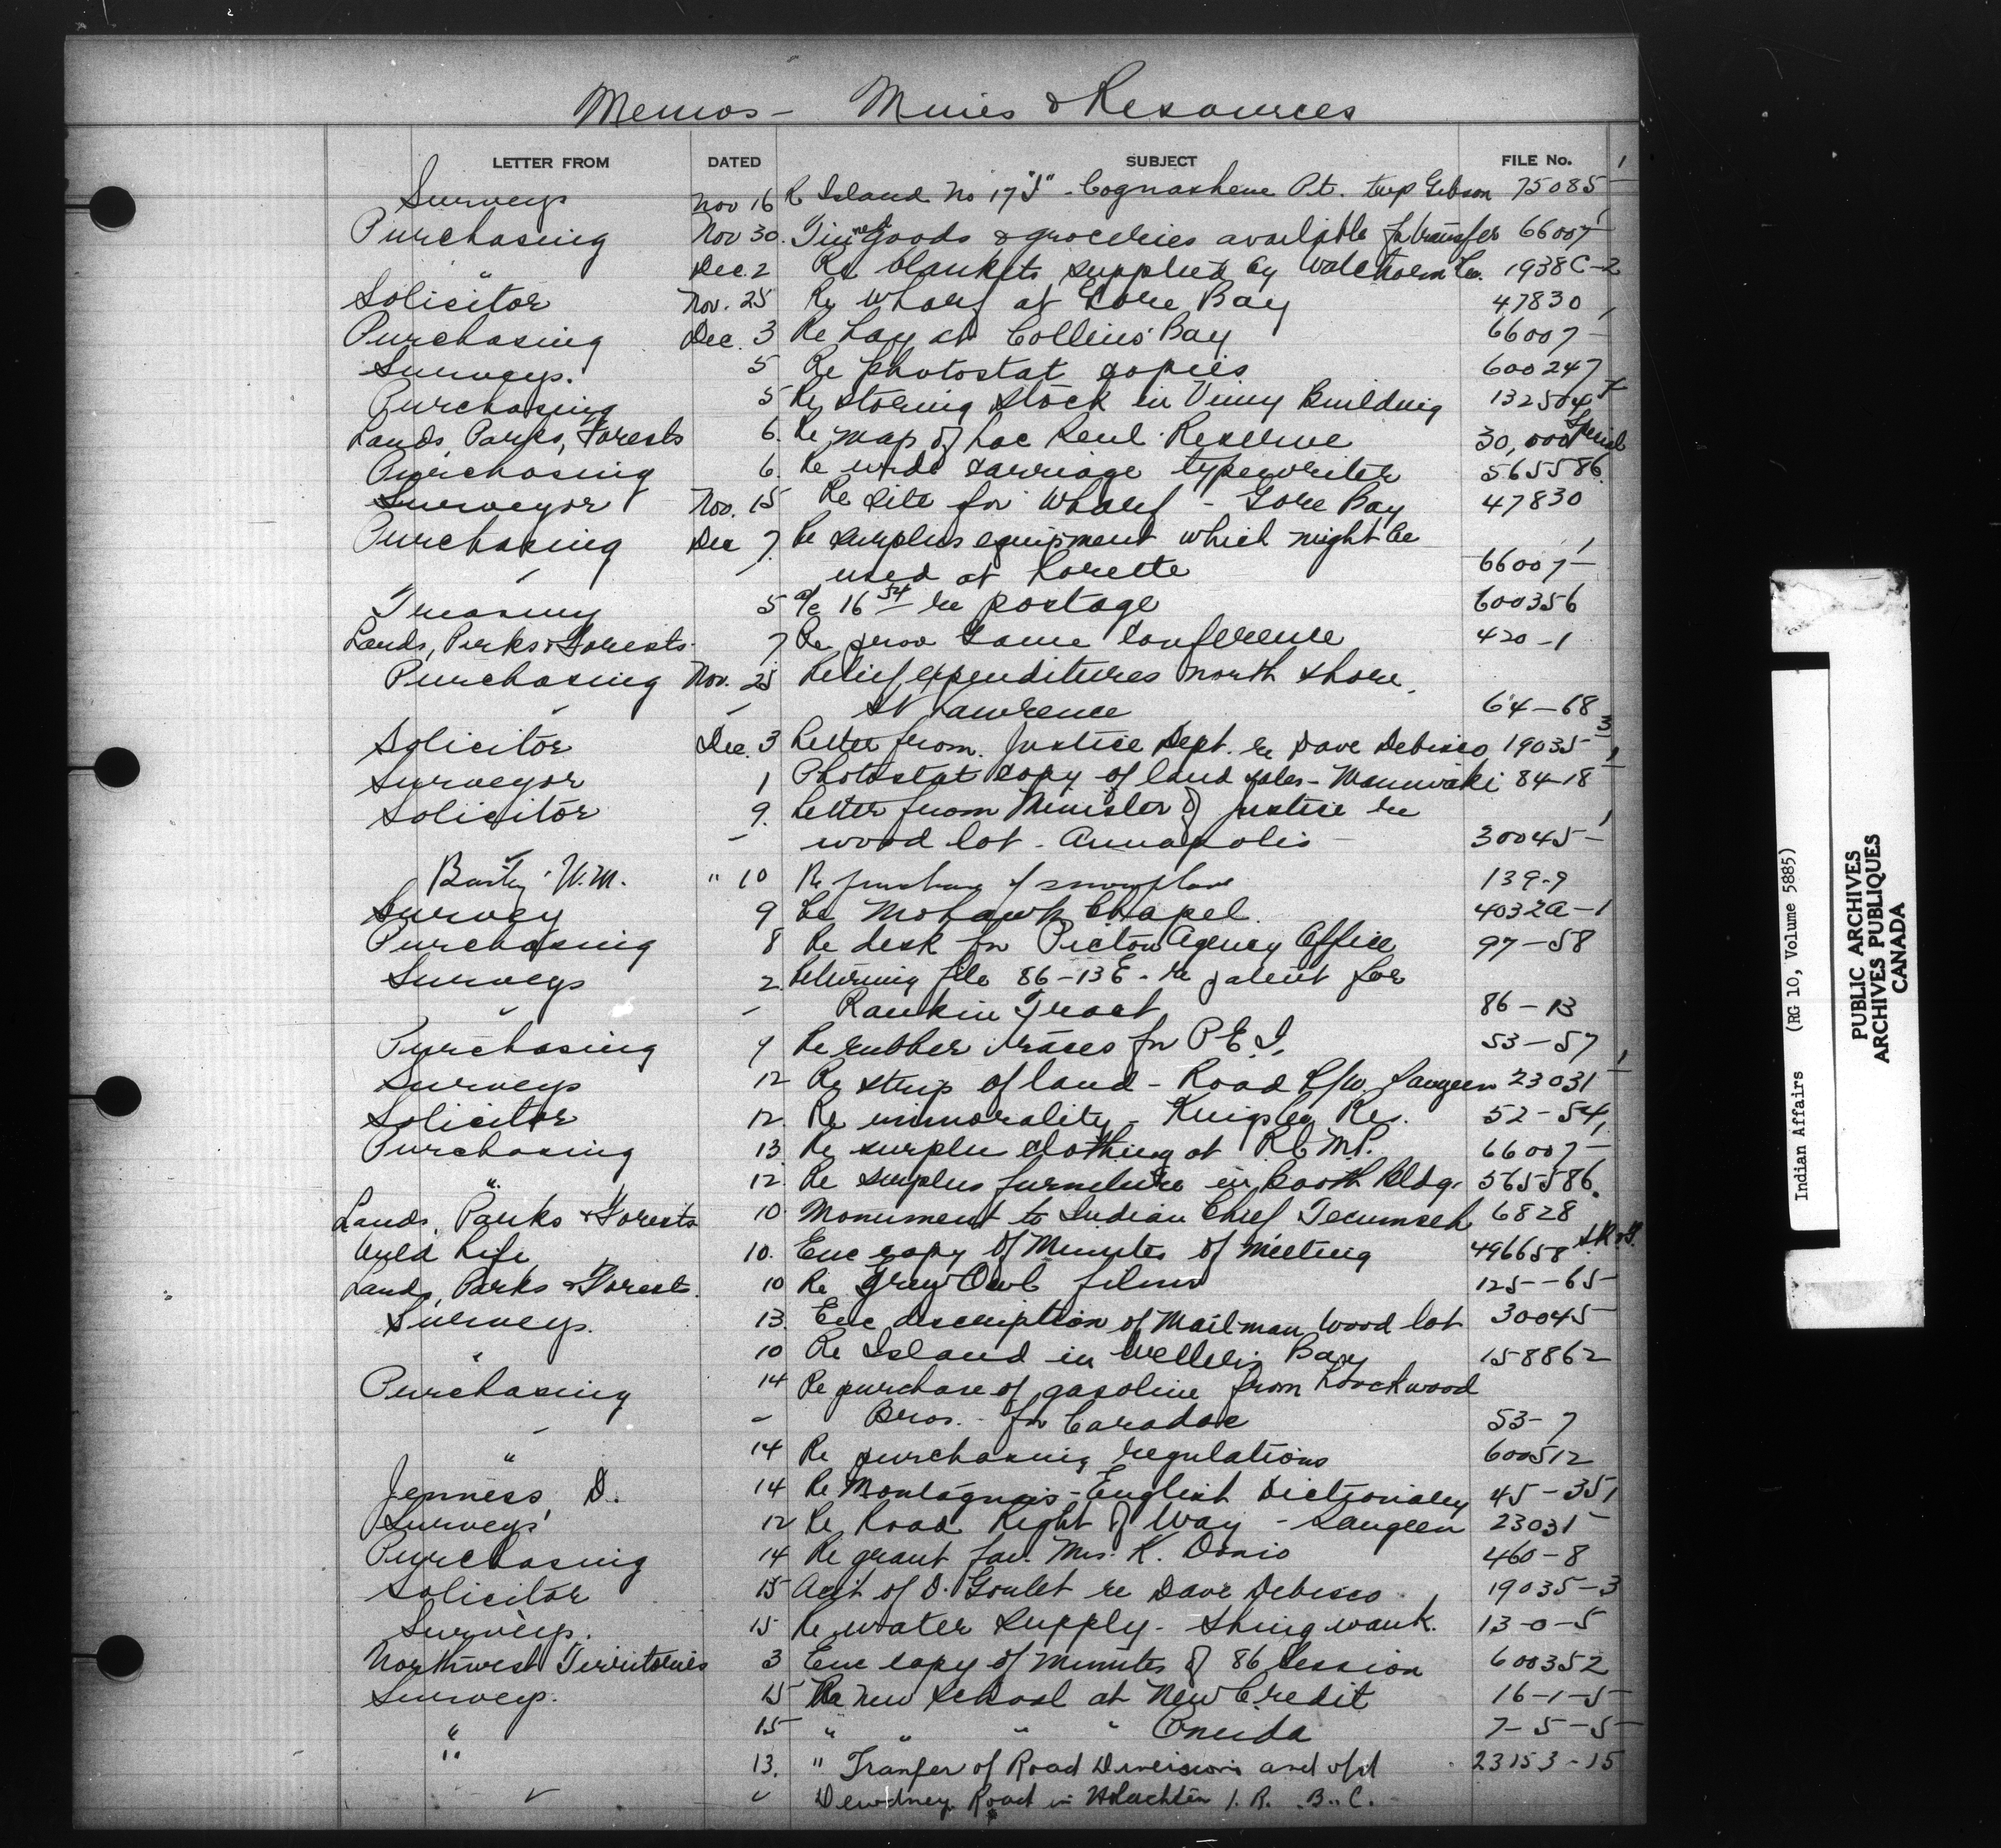 Memos - Mines & Resources
LETTER FROM DATED SUBJECT FILE No.
Surveys Nov 16 Re Island No 17 "J" - Cognashene Pt. twp Gibson 75085-1
Purchasing Nov 30. Tinned goods & groceries available for transfer 66007-1
" Dec. 2 Re blankets supplied by Co. 1938C-2
Solicitor Nov. 25 Re Wharf at Gore Bay 47830
Purchasing Dec. 3 Re hay at Collins' Bay 66007-1
Surveys. 5 Re photostat copies 600247
Purchasing 5 Re storing stock in Vimy Building 132504
Lands, Parks, Forests 6. Re map of Lac Seul Reserve 30,000 Special
Purchasing 6. Re wide carriage typewriter 565586.
Surveyor Nov. 15 Re site for Wharf - Gore Bay 47830
Purchasing Dec 7. Re surplus equipment which might be
used at Lorette 66007-1
Treasury 5 a/c 16 54 re postage 600356
Lands, Parks & Forests. 7 Re prov Game Conference 420-1
Purchasing Nov. 25 Relief expenditures north shore,
St Lawrence 64-68
Solicitor Dec. 3 Letter from Justice Dept. re Dave Debisco 19035-3
Surveyor 1 Photostat copy of land sales - Maniwaki 84-18-1
Solicitor 9. Letter from Minister of Justice re
wood lot - Annapolis 30045-1
W.M. " 10 Re purchase of snowplow 139-9
Survey 9 Re Mohawk Chapel. 4032A-1
Purchasing 8 Re desk for Picton Agency Office 97-58
Surveys 2 Returning file 86-13E - re patent for
" - Rankin Tract 86-13
Purchasing 9 Re rubber for P.E.I. 53-57
Surveys 12 Re strip of land - Road R/W. Saugeen 23031-1
Solicitor 12. Re immorality - Kingsclear Res. 52-54
Purchasing 13. Re surplus clothing at R.C.M.P. 66007-1
" 12. Re surplus furniture in Booth Bldg. 565586.
Lands, Parks & Forests 10. Monument to Indian Chief Tecumseh 6828
Wild Life 10. Enc copy of Minutes of Meeting 496658
Lands, Parks & Forests. 10 Re Grey Owl films 125-65
Surveys. 13. Enc description of Mailman Wood lot 30045-
" 10 Re Island in Weller's Bay 158862
Purchasing 14 Re purchase of gasoline from Lockwood
- Bros. - for Caradoc 53-7
" 14 Re purchasing regulations 600512
Jenness, D. 14 Re Montagnais-English Dictionary 45-35
Surveys 12 Re Road Right of Way - Saugeen 23031-1
Purchasing 14 Re grant fav. Mrs. K. Donio 460-8
Solicitor 15 Acct of D. Goulet re Dave Debisco 19035-3
Surveys. 15 Re water supply - Shingwauk. 13-0-5
Northwest Territories 3 Enc copy of minutes of 86 Session 600352
Surveys. 15 Re new school at New Credit 16-1-5
" 15 " " " " Oneida 7-5-5
" 13. " Tranfer of Road Diversions and old 23153-15
" " Dewdney Road in I.R. B.C.
Indian Affairs (RG 10, Volume 5885)
PUBLIC ARCHIVES
ARCHIVES PUBLIQUES
CANADA